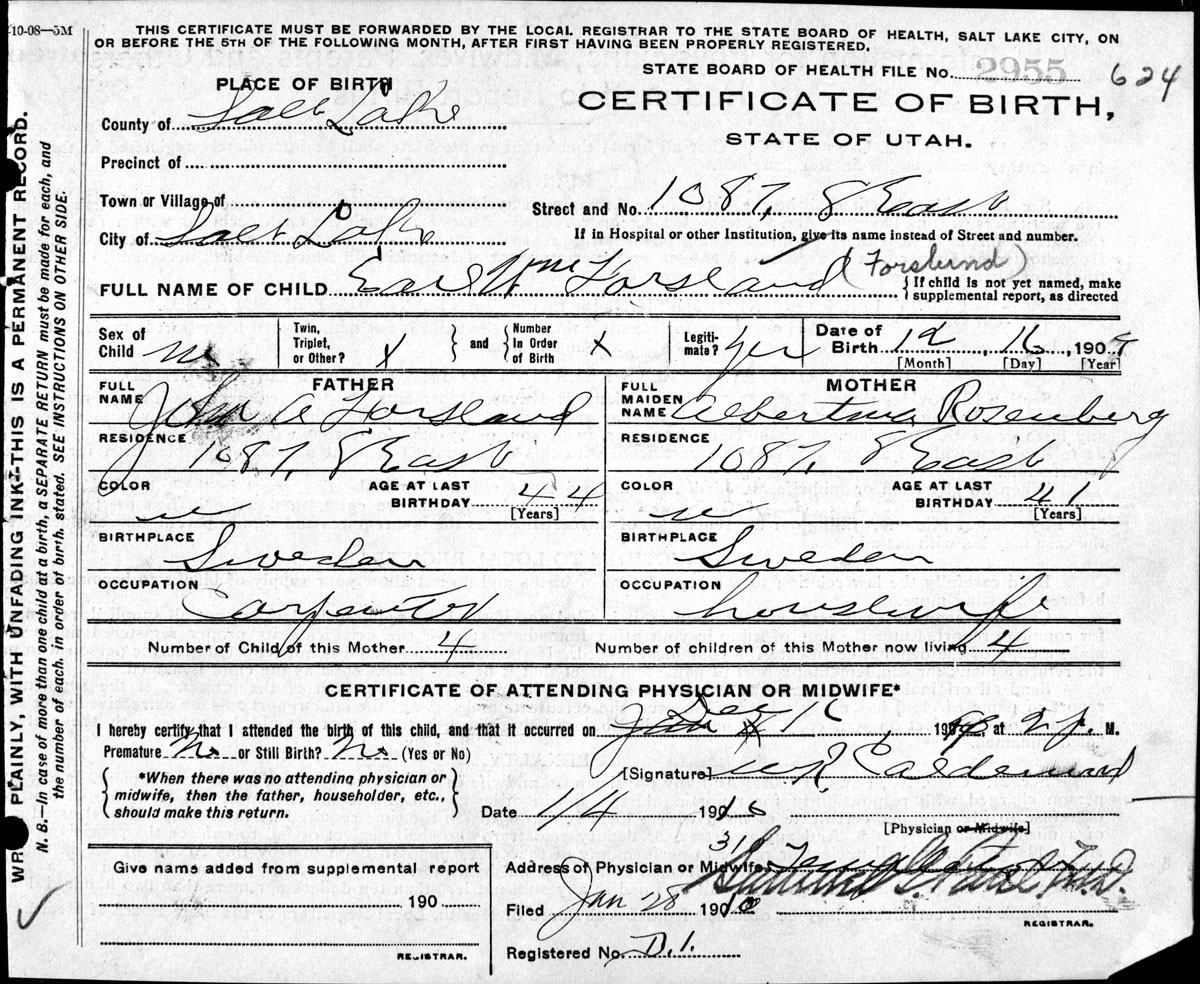 -10-08—5M
THIS CERTIFICATE MUST BE FORWARDED BY THE LOCAL REGISTRAR TO THE STATE BOARD OF HEALTH, SALT LAKE CITY, ON
OR BEFORE THE 5TH OF THE FOLLOWING MONTH, AFTER FIRST HAVING BEEN PROPERLY REGISTERED.
STATE BOARD OF HEALTH FILE No. 2955 624
PLACE OF BIRTH
CERTIFICATE OF BIRTH,
STATE OF UTAH.
County of Salt Lake
Precinct of
Town or Village of
Street and No. 1087, 8 East
City of Salt Lake
If in Hospital or other Institution, give its name instead of Street and number.
FULL NAME OF CHILD Earl Wm Forsland (Forslund)
{ If child is not yet named, make
supplemental report, as directed
Sex of Child m
Twin, Triplet, or Other? X } and { Number In Order of Birth X
Legitimate? Yes
Date of Birth 12, 16, 1909
[Month] [Day] [Year]
FATHER
FULL NAME John A Forsland
RESIDENCE 1087, 8 East
COLOR w
AGE AT LAST BIRTHDAY 44 [Years]
BIRTHPLACE Sweden
OCCUPATION Carpenter
MOTHER
FULL MAIDEN NAME Albertina Rosenberg
RESIDENCE 1087, 8 East
COLOR w
AGE AT LAST BIRTHDAY 41 [Years]
BIRTHPLACE Sweden
OCCUPATION housewife
Number of Child of this Mother 4
Number of children of this Mother now living 4
CERTIFICATE OF ATTENDING PHYSICIAN OR MIDWIFE*
I hereby certify that I attended the birth of this child, and that it occurred on Dec 16, 190 at 2 p. M.
Premature No or Still Birth? No (Yes or No)
{ *When there was no attending physician or
midwife, then the father, householder, etc.,
should make this return. }
[Signature]
Date 1/4 1910
[Physician or Midwife]
Address of Physician or Midwife
Filed Jan 28 1910
REGISTRAR.
Registered No. D.1.
Give name added from supplemental report
190
REGISTRAR.
WRITE PLAINLY, WITH UNFADING INK—THIS IS A PERMANENT RECORD.
N. B.—In case of more than one child at a birth, a SEPARATE RETURN must be made for each, and
the number of each, in order of birth, stated. SEE INSTRUCTIONS ON OTHER SIDE.